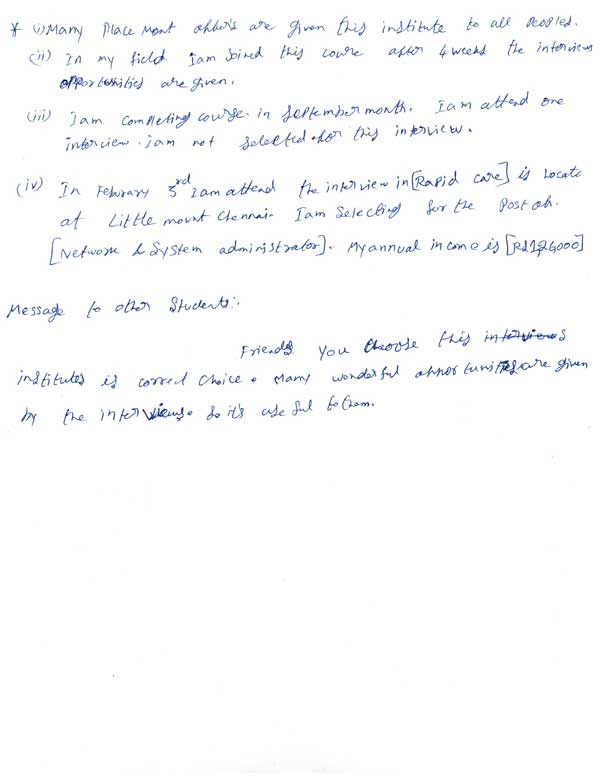 * (i) Many Place Ment offers are given this institute to all Peoples.
(ii) In my field Iam joined this course after 4 weeks the interviews
opportunities are given.
(iii) Iam completing course in September month. Iam attend one
interview. iam not selected for this interview.
(iv) In Feburary 3rd Iam attend the interview in [Rapid care] is Locate
at Little mount Chennai- Iam Selecting for the Post of.
[Network & System administrator]. My annual income is
Message to other Students:.
Friends you choose this
institutes is correct choice. Many wonderful opportunities are given
by the interviews. So it's use ful to them.